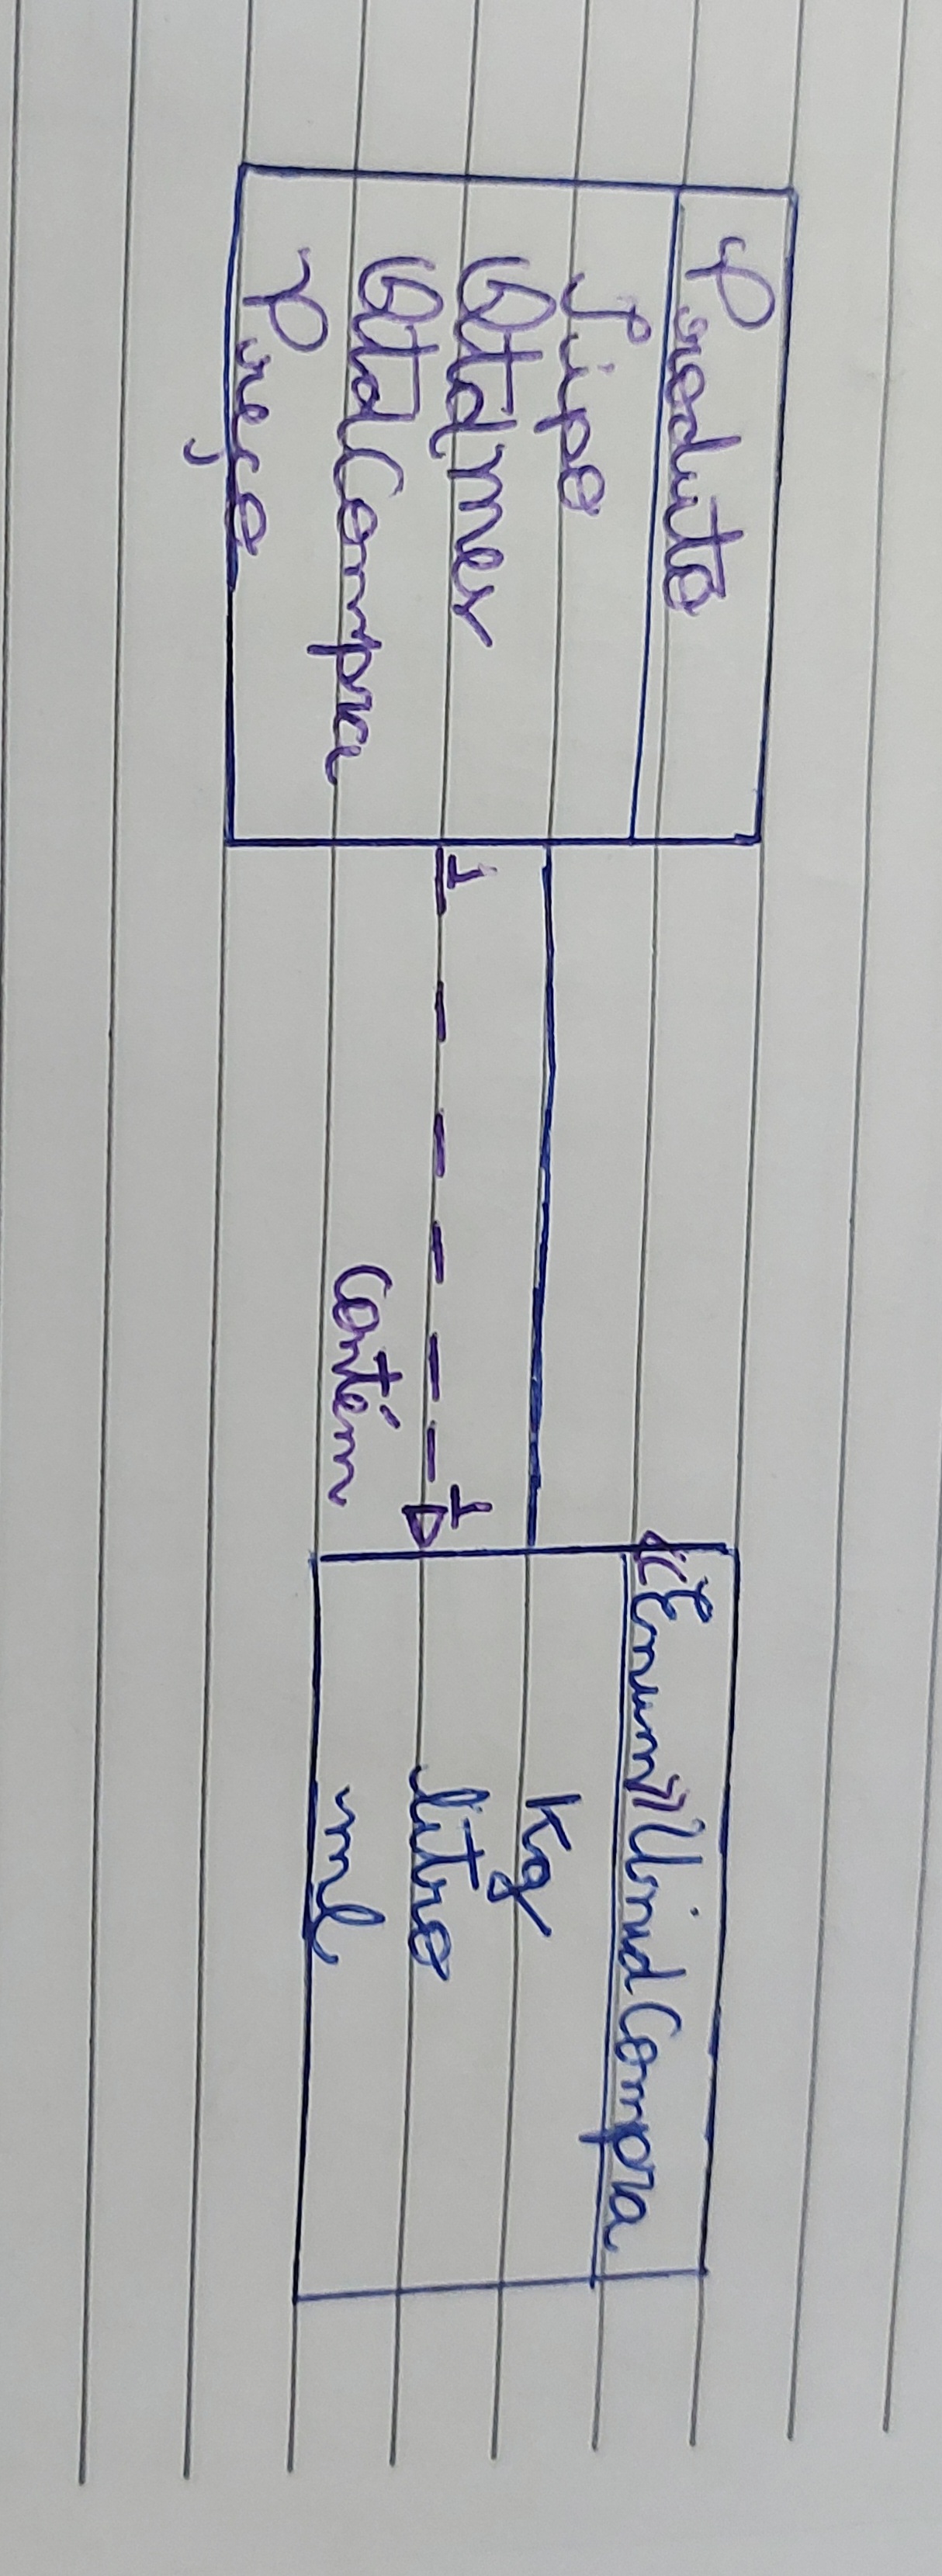 Produto
Tipo
QtdMer
QtdCompra
Preço
1
1
Contém
«Enum» UnidCompra
Kg
litro
ml